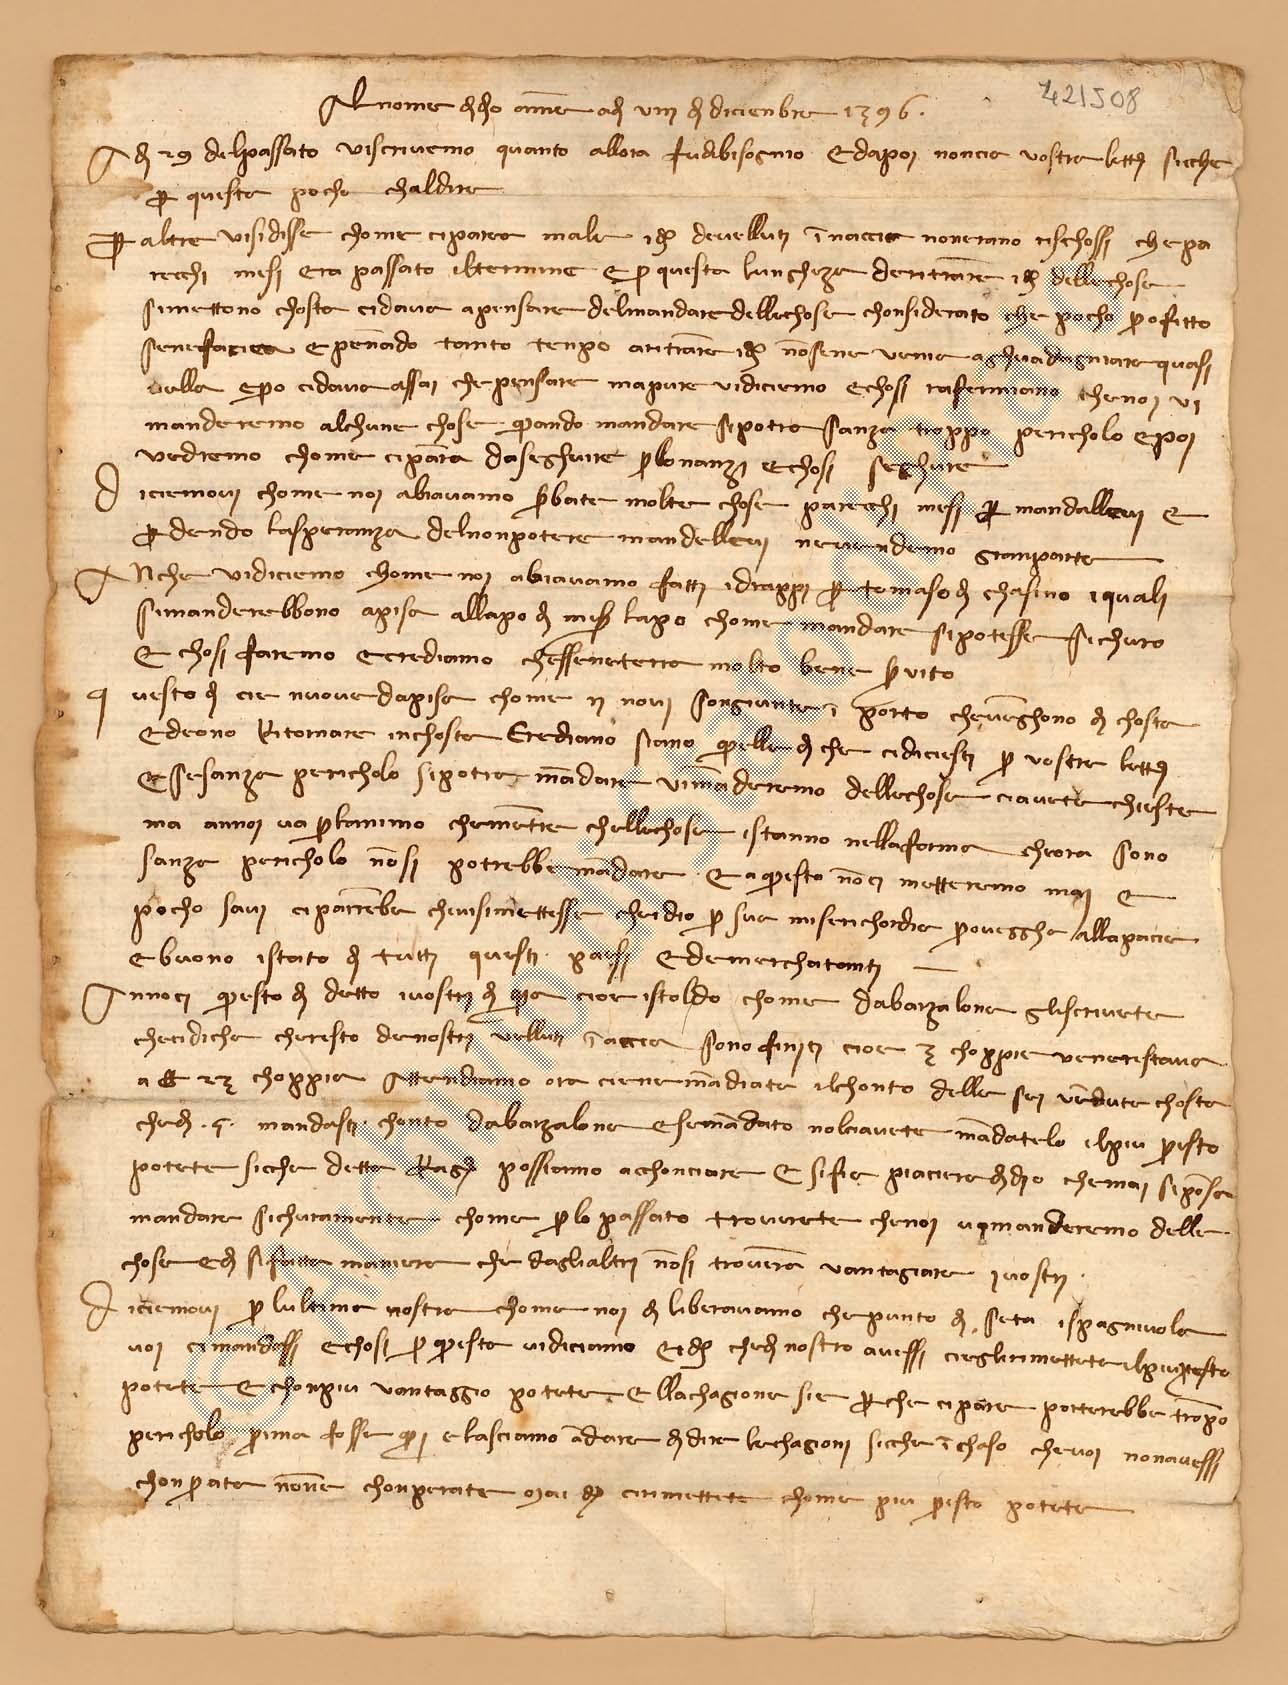 421508
Al nome di dio amen adi viii di dicienbre 1396.
A di 29 del passato vi scrivemo quanto allora fu di bisogno e dapoi non cie vostre lett. sicche
p questa pocho cha dire
P altre vi si disse chome ci parea male i d. de velluti inaccia non erano rischossi che pa
recchi mesi era passato il termine e p questa lungheza de ritrarre i d. delle chose
si mettono chosta ci dava a pensare del mandare delle chose chonsiderato che pocho profitto
se ne faciea e penando tanto tenpo a ritrarre i d. non se ne venia a ghuadagniare quasi
nulla e pero ci dava assai che pensare ma pure vi diciemo e chosi rafermiano che noi vi
manderemo alchune chose quando mandare si potra sanza troppo pericholo e poi
vedremo chome ci parra da seghuire p lo nanzi e chosi seghuire
D iciemovi chome noi abiavamo serbate molte chose parecchi mesi p mandallevi e
perdendo la speranza del non potere mandellevi ne vendemo gran parte
A nche vi diciemo chome noi abiavamo fatti i drappi p tomaso di chasino i quali
si manderebbono a pisa a llapo di messer lapo chome mandare si potesse sichuro
e chosi faremo e crediamo che ssene terra molto bene servito
q uesto di cie nuove da pisa chome ii navi son giunte i porto che venghono di chosta
e deono ritornare in chosta crediano siano quelle di che ci diciesti p vostra lett.
e se sanza pericholo si potra mandare vi manderemo delle chose ci avete chieste
ma a nnoi va p l animo che mentre che lle chose istanno nella forma che ora sono
sanza pericholo non si potrebbe mandare e a questo non ci metteremo mai e
pocho savi ci parrebbe chi vi si mettesse che idio p sua miserichordia provegha alla pacie
e buono istato di tutti questi paesi e de merchatanti
A nnoci questo di detto i vostri di qua cioe istoldo chome da barzalona gli scrivete
che ci diche che resto de nostri velluti inaccia sono finiti cioe 3 choppie ve ne restava
a ss 23 choppia attendiamo ora ciene mandiate il chonto delle sei vendute chosta
che di 5 mandasti chonto da barzalona e se mandato nol ci avete mandatelo il piu presto
potete sicche detta ragione possiamo acchonciare e si fie piaciere di dio che mai si possa
mandare sichuramente chome p lo passato troverete che noi vi manderemo delle
chose e di si fatta maniera che dagli altri non si trovera vantagiare i vostri.
D iciemovi p l ultima nostra chome noi diliberavamo che punto di seta ispagniuola
voi ci mandassi e chosi p questa vi diciamo e i d. che di nostro avessi cie gli rimettete il piu presto
potete e chon piu vantaggio potete e lla chagione sie perche ci pare porterebbe tropo
pericholo prima fosse qui e lasciamo andare di dire le chagioni sicche i chaso che voi non avessi
chonprata non ne chonperate mai e d. ci rimettete chome piu presto potete